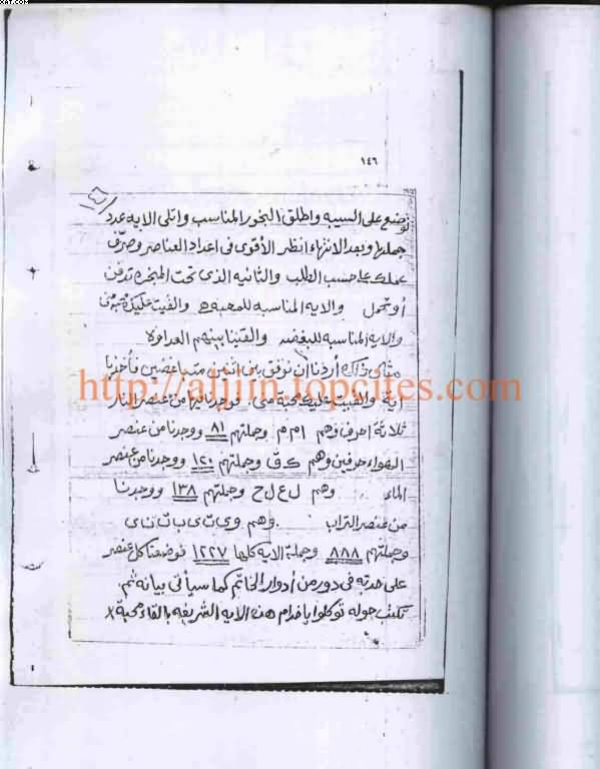 XAT.COM
١٤٦
١٤٦
توضع على السيبه واطلق البخور المناسب واتلى الايه عدد
جملها وبعد الانتهاء انظر الأقوى فى اعداد العناصر وصرّف
عملك على حسب الطلب والثانيه الذى تحت المبخره تدفن
أو تحمل والايه المناسبه للمحبه والقيت عليك محبة منى
والايه المناسبه للبغضه والقينا بينهم العداوة
مثال ذلك أردنا ان نوفق بين اثنين متباغضين فأخذنا
اية والقيت عليك محبة منى فوجدنا فيها من عنصر النار
ثلاثة احرف وهم ا م م وجملتهم ٨١ ووجدنا من عنصر
الهواء حرفين وهم ك ق وجملتهم ١٢٠ ووجدنا من عنصر
الماء وهم ل ع ل ح وجملتهم ١٣٨ ووجدنا
من عنصر التراب وهم و ى ت ى ب ت ن ى
وجملتهم ٨٨٨ وجملة الايه كلها ١٢٢٧ فوضعنا كل عنصر
على حدته فى دور من أدوار الخاتم كما سيأتى بيانه ثم
تكتب حوله توكلوا ياخدام هذه الايه الشريفه بالقاء محبة
http://aljiin.topcites.com